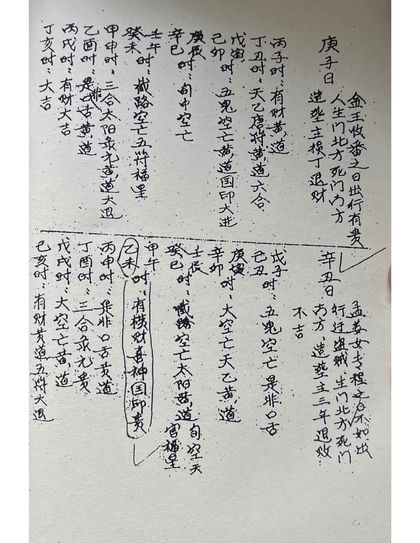 庚子日
金玉牧番之日出行有贵
人生门北方死门南方
造葬主损丁退财
丙子时：有财黄道
丁丑时：天乙唐符黄道六合
戊寅
己卯时：五鬼空亡黄道国印大进
庚辰
辛巳时：旬中空亡
壬午
癸未时：截路空亡五符福星
甲申时：三合太阳黄道大退
乙酉时：是非口舌黄道
丙戌时：有财大吉
丁亥时：大吉
辛丑日
之日不如出
行行逢贼生门北方死门
南方，造葬主三年退败
不吉
戊子时：
己丑时：五鬼空亡是非口舌
庚寅
辛卯时：大空亡天乙黄道
壬辰 旬空天
癸巳时：截路空亡太阳黄道官福星
甲午
乙未时：有横财喜神国印贵
丙申时：是非口舌黄道
丁酉时：三合贵
戊戌时：大空亡黄道
己亥时：有财黄道五符大退